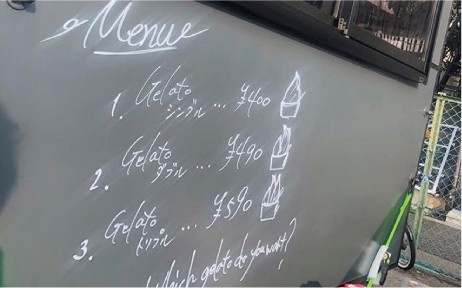 Menue
1. Gelato シングル ... ¥400
2. Gelato ダブル ... ¥490
3. Gelato トリプル ... ¥590
Which gelato do you want?